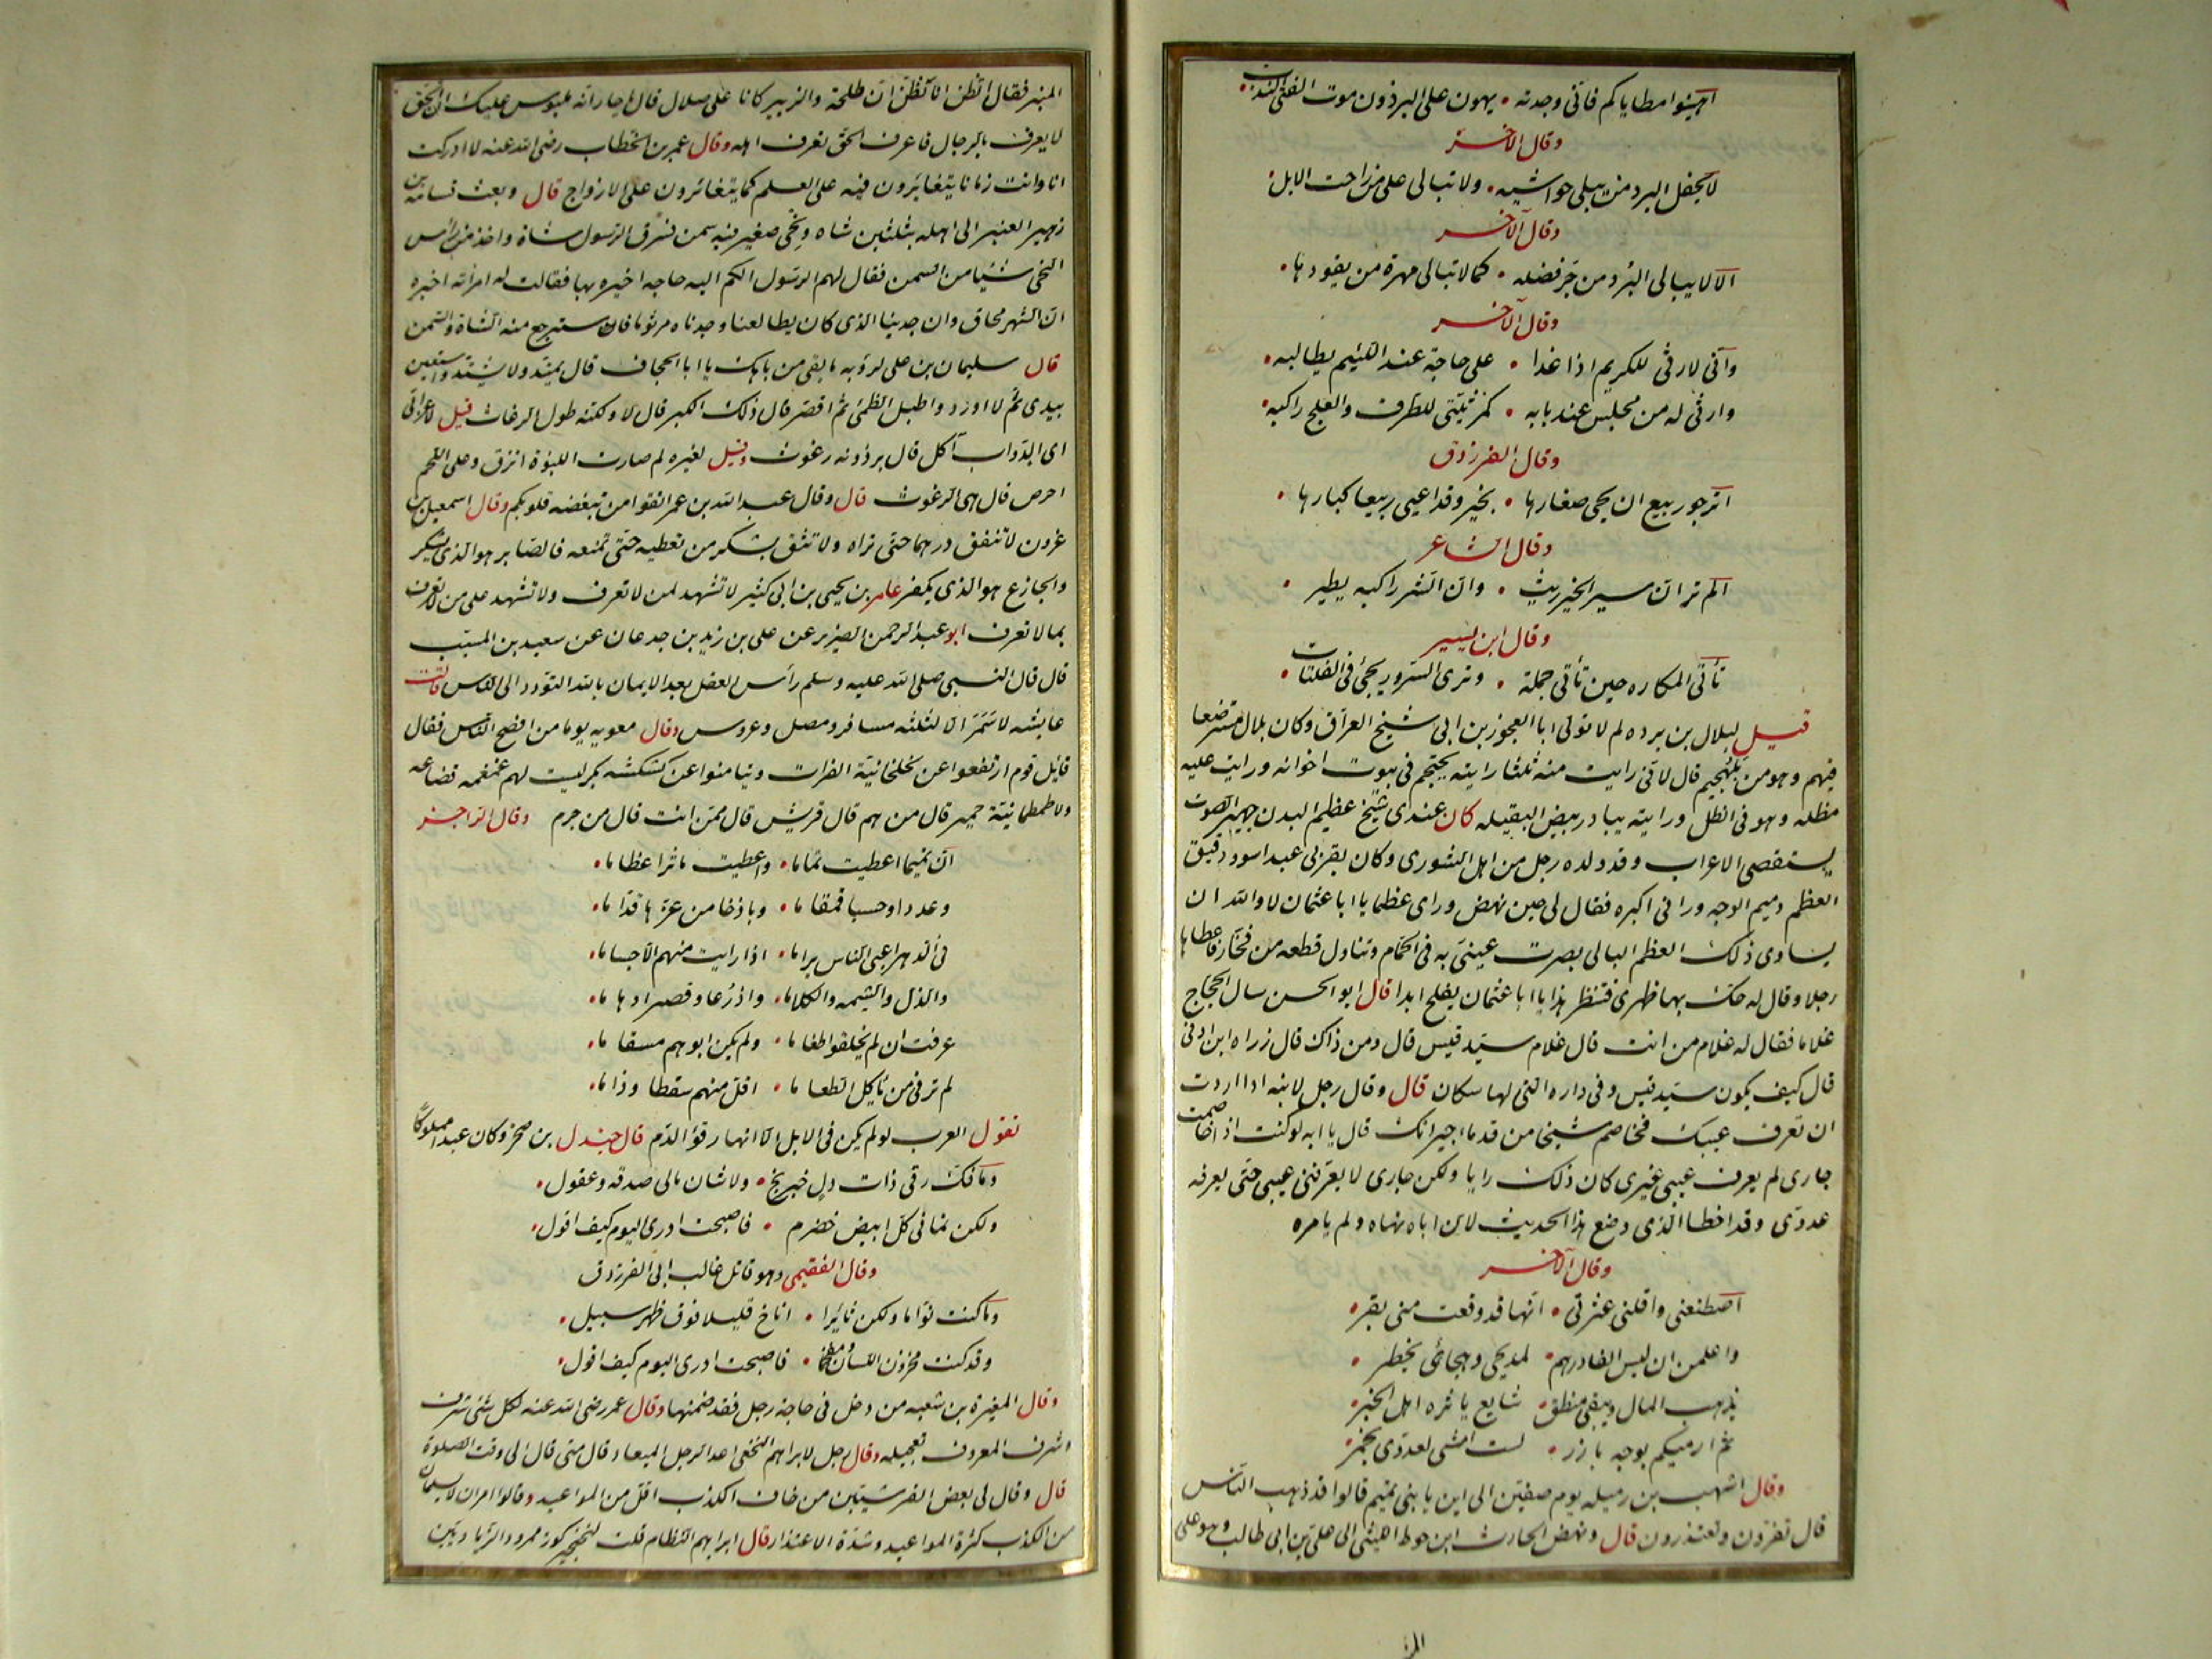 اهينوا مطاياكم فانى وجدته • يهون على البرذون موت الفتى الندب
وقال الآخر
لا يحفل البرد من يبلى حواشيه • ولا تبالى على من راحت الابل
وقال الآخر
الا لا يبالى البرد من جر فضله • كما لا تبالى مهرة من يقودها
وقال الآخر
وانى لارثى للكريم اذا غدا • على حاجة عند اللئيم يطالبه
وارثى له من مجلس عند بابه • كمرثيتى للطرف والعلج راكبه
وقال الفرزدق
اترجو ربيع ان يجى صغارها • بخير وقد اعيى ربيعا كبارها
وقال الشاعر
الم تر ان سير الخير ريث • وان الشر راكبه يطير
وقال ابن يسير
تأتى المكاره حين تأتى جملة • وترى السرور يجئ فى الفلتات
قيل لبلال بن برده لم لا تولى ابا العجوز بن ابى شيخ العراق وكان بلال مسترضعا
فيهم وهو من بلهجيم قال لانى رايت منه ثلثا رايته يحتجم فى بيوت اخوانه ورايت عليه
مظله وهو فى الظل ورايته يبادر بيض البقيله كان عندى شيخ عظيم البدن جهير الصوت
يستقصى الاعراب وقد ولده رجل من اهل الشورى وكان بقربى عبد اسود دقيق
العظم دميم الوجه ورانى اكبره فقال لى حين نهض وراى عظما يا ابا عثمان لا والله ان
يساوى ذلك العظم البالى بصرت عينى به فى الحمام وتناول قطعه من فخار فاعطاها
رجلا وقال له حك بها ظهرى فتنظر هذا يا ابا عثمان يفلح ابدا قال ابو الحسن سال الحجاج
غلاما فقال له غلام من انت قال غلام سيد قيس قال ومن ذاك قال زراه ابن اوفى
قال كيف يكون سيد قيس وفى داره التى لها سكان قال وقال رجل لابنه اذا اردت
ان تعرف عيبك فخاصم شيخا من قدماء جيرانك قال يا ابه لو كنت اذا خاصمت
جارى لم يعرف عيبى غيرى كان ذلك رايا ولكن جارى لا يعرفنى عيبى حتى يعرفه
عدوى وقد اخطا الذى وضع هذا الحديث لان اباه نهاه ولم يامره
وقال الآخر
اصطنعنى واقلنى عثرتى • انها قد وقعت منى بقر
واعلمن ان ليس الفا درهم • لمديحى وهجائى بخطر
يذهب المال ويبقى منطق • شايع ياثره اهل الخبر
ثم ارميكم بوجه بارز • لست امشى لعدوى بخمر
وقال اشهب بن رميله يوم صفين الى اين يا بنى تميم قالوا قد ذهب الناس
قال تفرون وتعتذرون قال ونهض الحارث ابن حوط الليثى الى على بن ابى طالب وهو على
المنبر فقال اتظن انا نظن ان طلحة والزبير كانا على ضلال قال يا حار انه ملبوس عليك ان الحق
لا يعرف بالرجال فاعرف الحق تعرف اهله وقال عمر بن الخطاب رضى الله عنه لا ادركت
انا وانت زمانا يتغايرون فيه على العلم كما يتغايرون على الازواج قال وبعث قسامه بن
زهير العنبر الى اهله بثلثين شاه ونحى صغير فيه سمن فسرق الرسول شاة واخذ من راس
النحى شيئا من السمن فقال لهم الرسول الكم اليه حاجه اخبره بها فقالت له امراته اخبره
ان الشهر محاق وان جدينا الذى كان يطالعنا وجدناه مرثوما فاسترجع منه الشاة والسمن
قال سليمان بن على لرؤبه ما بقى من باهك يا ابا الحجاف قال يمتد ولا يشتد واستعين
بيدى ثم لا اورد واطيل الظمئ ثم اقصر قال ذلك الكبر قال لا ولكنه طول الرغاث قيل لاعرابى
اى الدواب آكل قال برذونه رغوث وقيل لغيره لم صارت اللبؤة انزق وعلى اللحم
احرص قال هى الرغوث قال وقال عبد الله بن عمر اتقوا من تبغضه قلوبكم وقال اسمعيل بن
غزون لا تنفق درهما حتى تراه ولا تثق بشكر من تعطيه حتى تمنعه فالصابر هو الذى يشكر
والجازع هو الذى يكفر عامر بن يحيى بن ابى كثير لا تشهد لمن لا تعرف ولا تشهد على من لا تعرف
بما لا تعرف ابو عبد الرحمن الضرير عن على بن زيد بن جدعان عن سعيد بن المسيب
قال قال النبى صلى الله عليه وسلم رأس العقل بعد الايمان بالله التودد الى الناس قالت
عايشه لا سمر الا لثلثه مسافر ومصل وعروس وقال معويه يوما من افصح الناس فقال
قايل قوم ارتفعوا عن لخلخانية الفرات وتيامنوا عن كشكشه بكر ليست لهم غمغمه قضاعه
ولا طمطمانية حمير قال من هم قال قريش قال ممن انت قال من جرم وقال الراجز
ان تميما اعطيت تماما • واعطيت ماثرا عظاما
وعددا وحسبا قمقاما • وباذخا من عزها قداما
فى الدهر اعيى الناس براما • اذا رايت منهم الاجساما
والدل والشيمه والكلاما • واذرعا وقصرا وهاما
عرفت ان لم يخلقوا طغاما • ولم يكن ابوهم مسقاما
لم تر فى من ياكل الطعاما • اقل منهم سقطا وذاما
تقول العرب لو لم يكن فى الابل الا انها رقؤ الدم قال جندل بن صخر وكان عبدا مملوكا
وما فك رقى ذات دل خبرنج • ولا شان مالى صدقه وعقول
ولكن نمانى كل ابيض خضرم • فاصبحت ادرى اليوم كيف اقول
وقال الفقيمى وهو قاتل غالب ابى الفرزدق
وما كنت نواما ولكن ثايرا • اناخ قليلا فوق ظهر سبيل
وقد كنت مخزون اللسان ومفحما • فاصبحت ادرى اليوم كيف اقول
وقال المغيرة بن شعبه من دخل فى حاجة رجل فقد ضمنها وقال عمر رضى الله عنه لكل شئ شرف
وشرف المعروف تعجيله وقال رجل لابراهيم النخعى اعد الرجل الميعاد قال متى قال الى وقت الصلوة
قال وقال لى بعض القرشيين من خاف الكذب اقل من المواعيد وقالوا امران لا يسلمان
من الكذب كثرة المواعيد وشدة الاعتذار قال ابراهيم النظام قلت لخنجير كوز ممرور الزياديين
المنبر